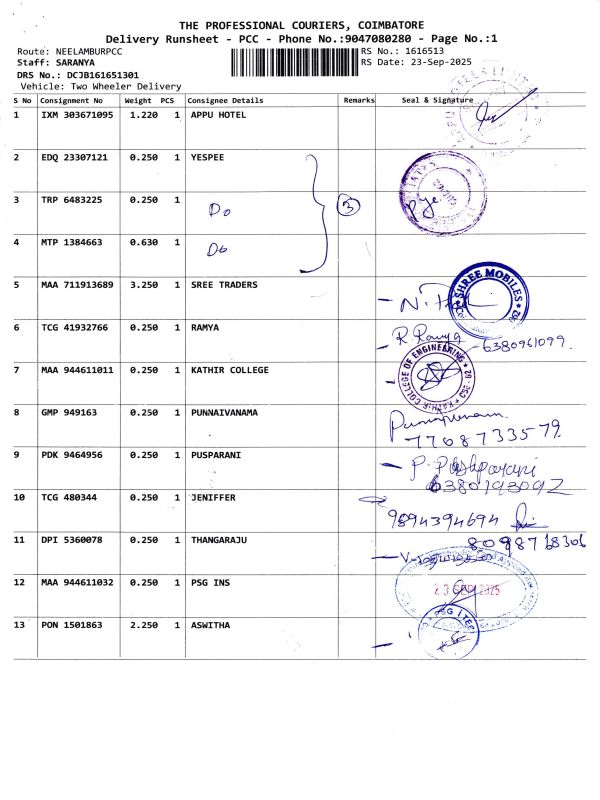 THE PROFESSIONAL COURIERS, COIMBATORE
Delivery Runsheet - PCC - Phone No.:9047080280 - Page No.:1
Route: NEELAMBURPCC RS No.: 1616513
Staff: SARANYA RS Date: 23-Sep-2025
DRS No.: DCJB161651301
Vehicle: Two Wheeler Delivery
S No Consignment No Weight PCS Consignee Details Remarks Seal & Signature
1 IXM 303671095 1.220 1 APPU HOTEL
2 EDQ 23307121 0.250 1 YESPEE
3 TRP 6483225 0.250 1 Do 3
4 MTP 1384663 0.630 1 Do
5 MAA 711913689 3.250 1 SREE TRADERS
SHREE MOBILES
6 TCG 41932766 0.250 1 RAMYA R Ramya
6380961099
7 MAA 944611011 0.250 1 KATHIR COLLEGE
KATHIR COLLEGE OF ENGINEERING
8 GMP 949163 0.250 1 PUNNAIVANAMA
7768733579
9 PDK 9464956 0.250 1 PUSPARANI P. Pushparani
6380193092
10 TCG 480344 0.250 1 JENIFFER 9894394694
11 DPI 5360078 0.250 1 THANGARAJU 8098768306
12 MAA 944611032 0.250 1 PSG INS 23 SEP 2025
13 PON 1501863 2.250 1 ASWITHA